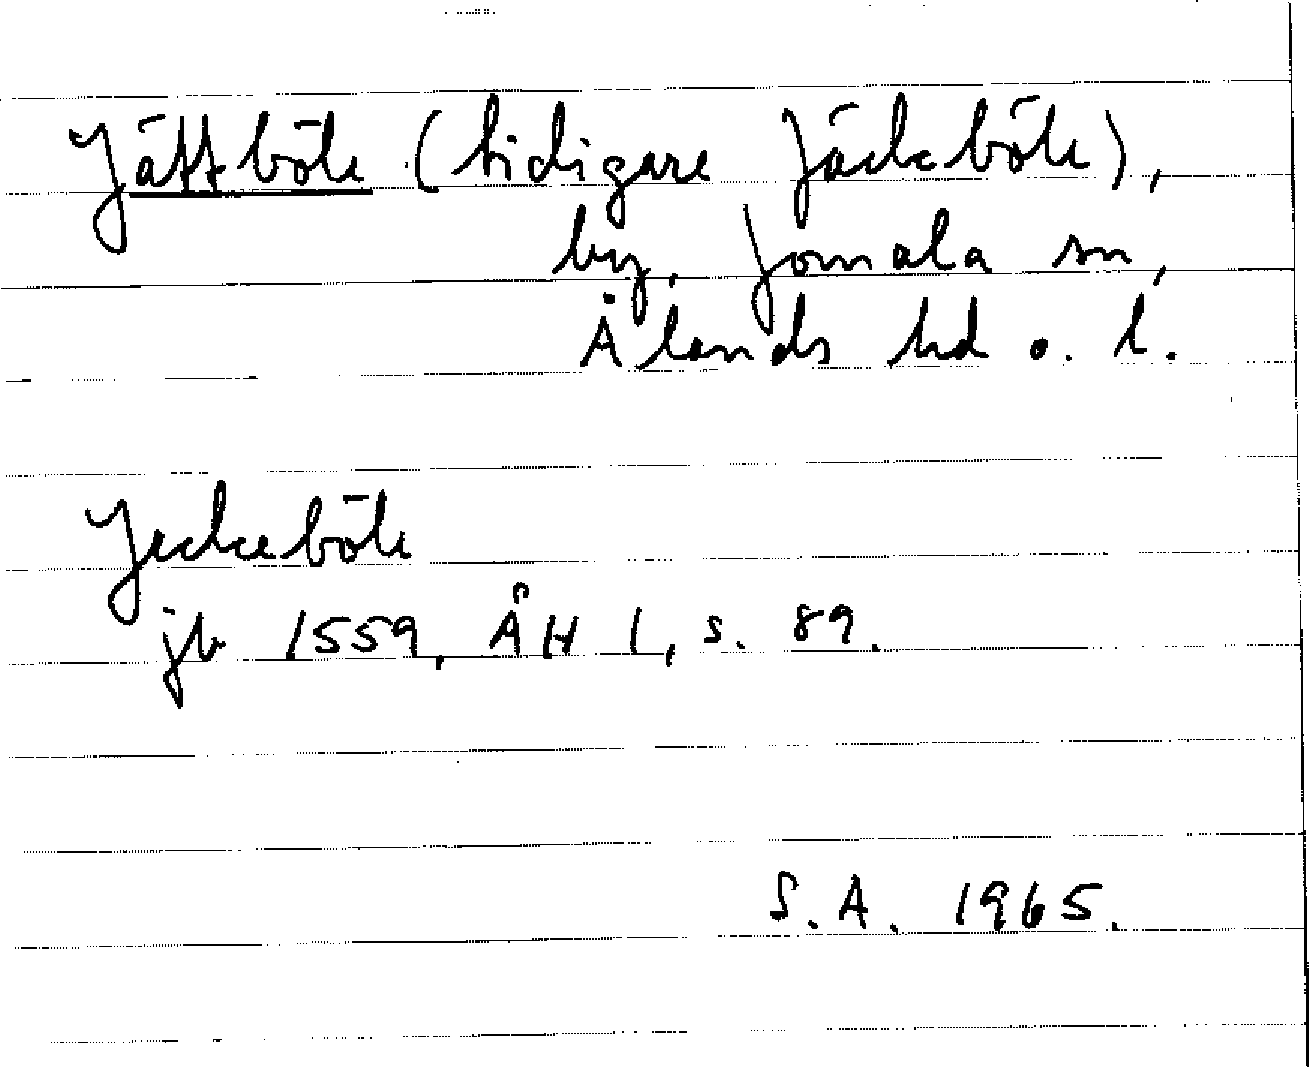 Jättböle (tidigare Jäckböle),
by, Jomala sn,
Ålands hd o. l.
Jeckeböle
jb 1559, ÅH 1, s. 89.
S.A. 1965.